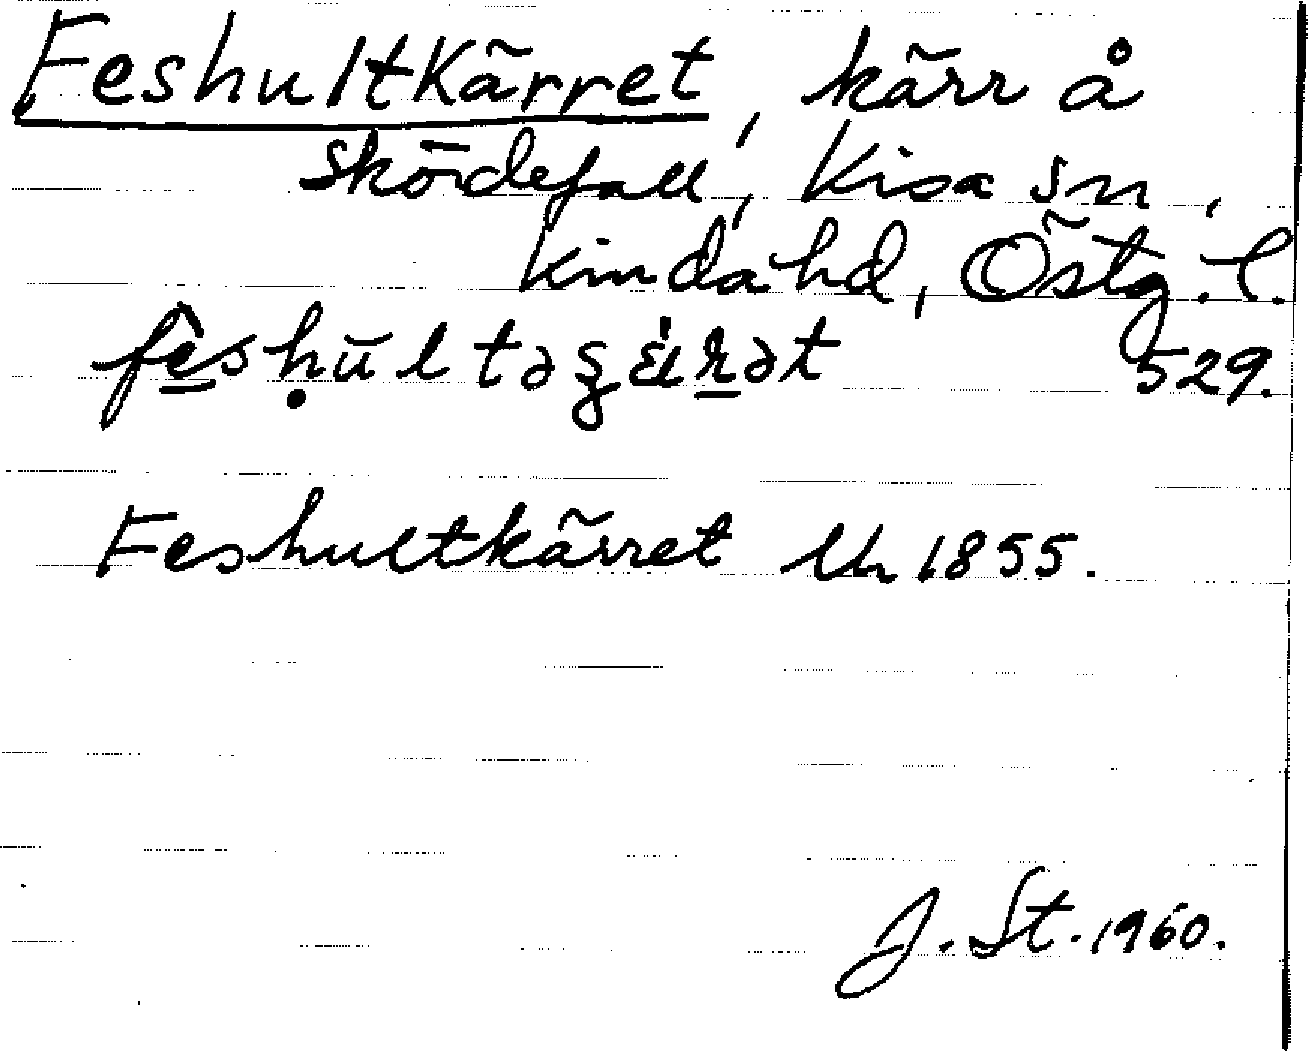 Feshultkärret, kärr å
Sködefall, Kisa sn,
Kinda hd, Östg. l.
529.
Feshultkärret Lk 1855.
J. St. 1960.